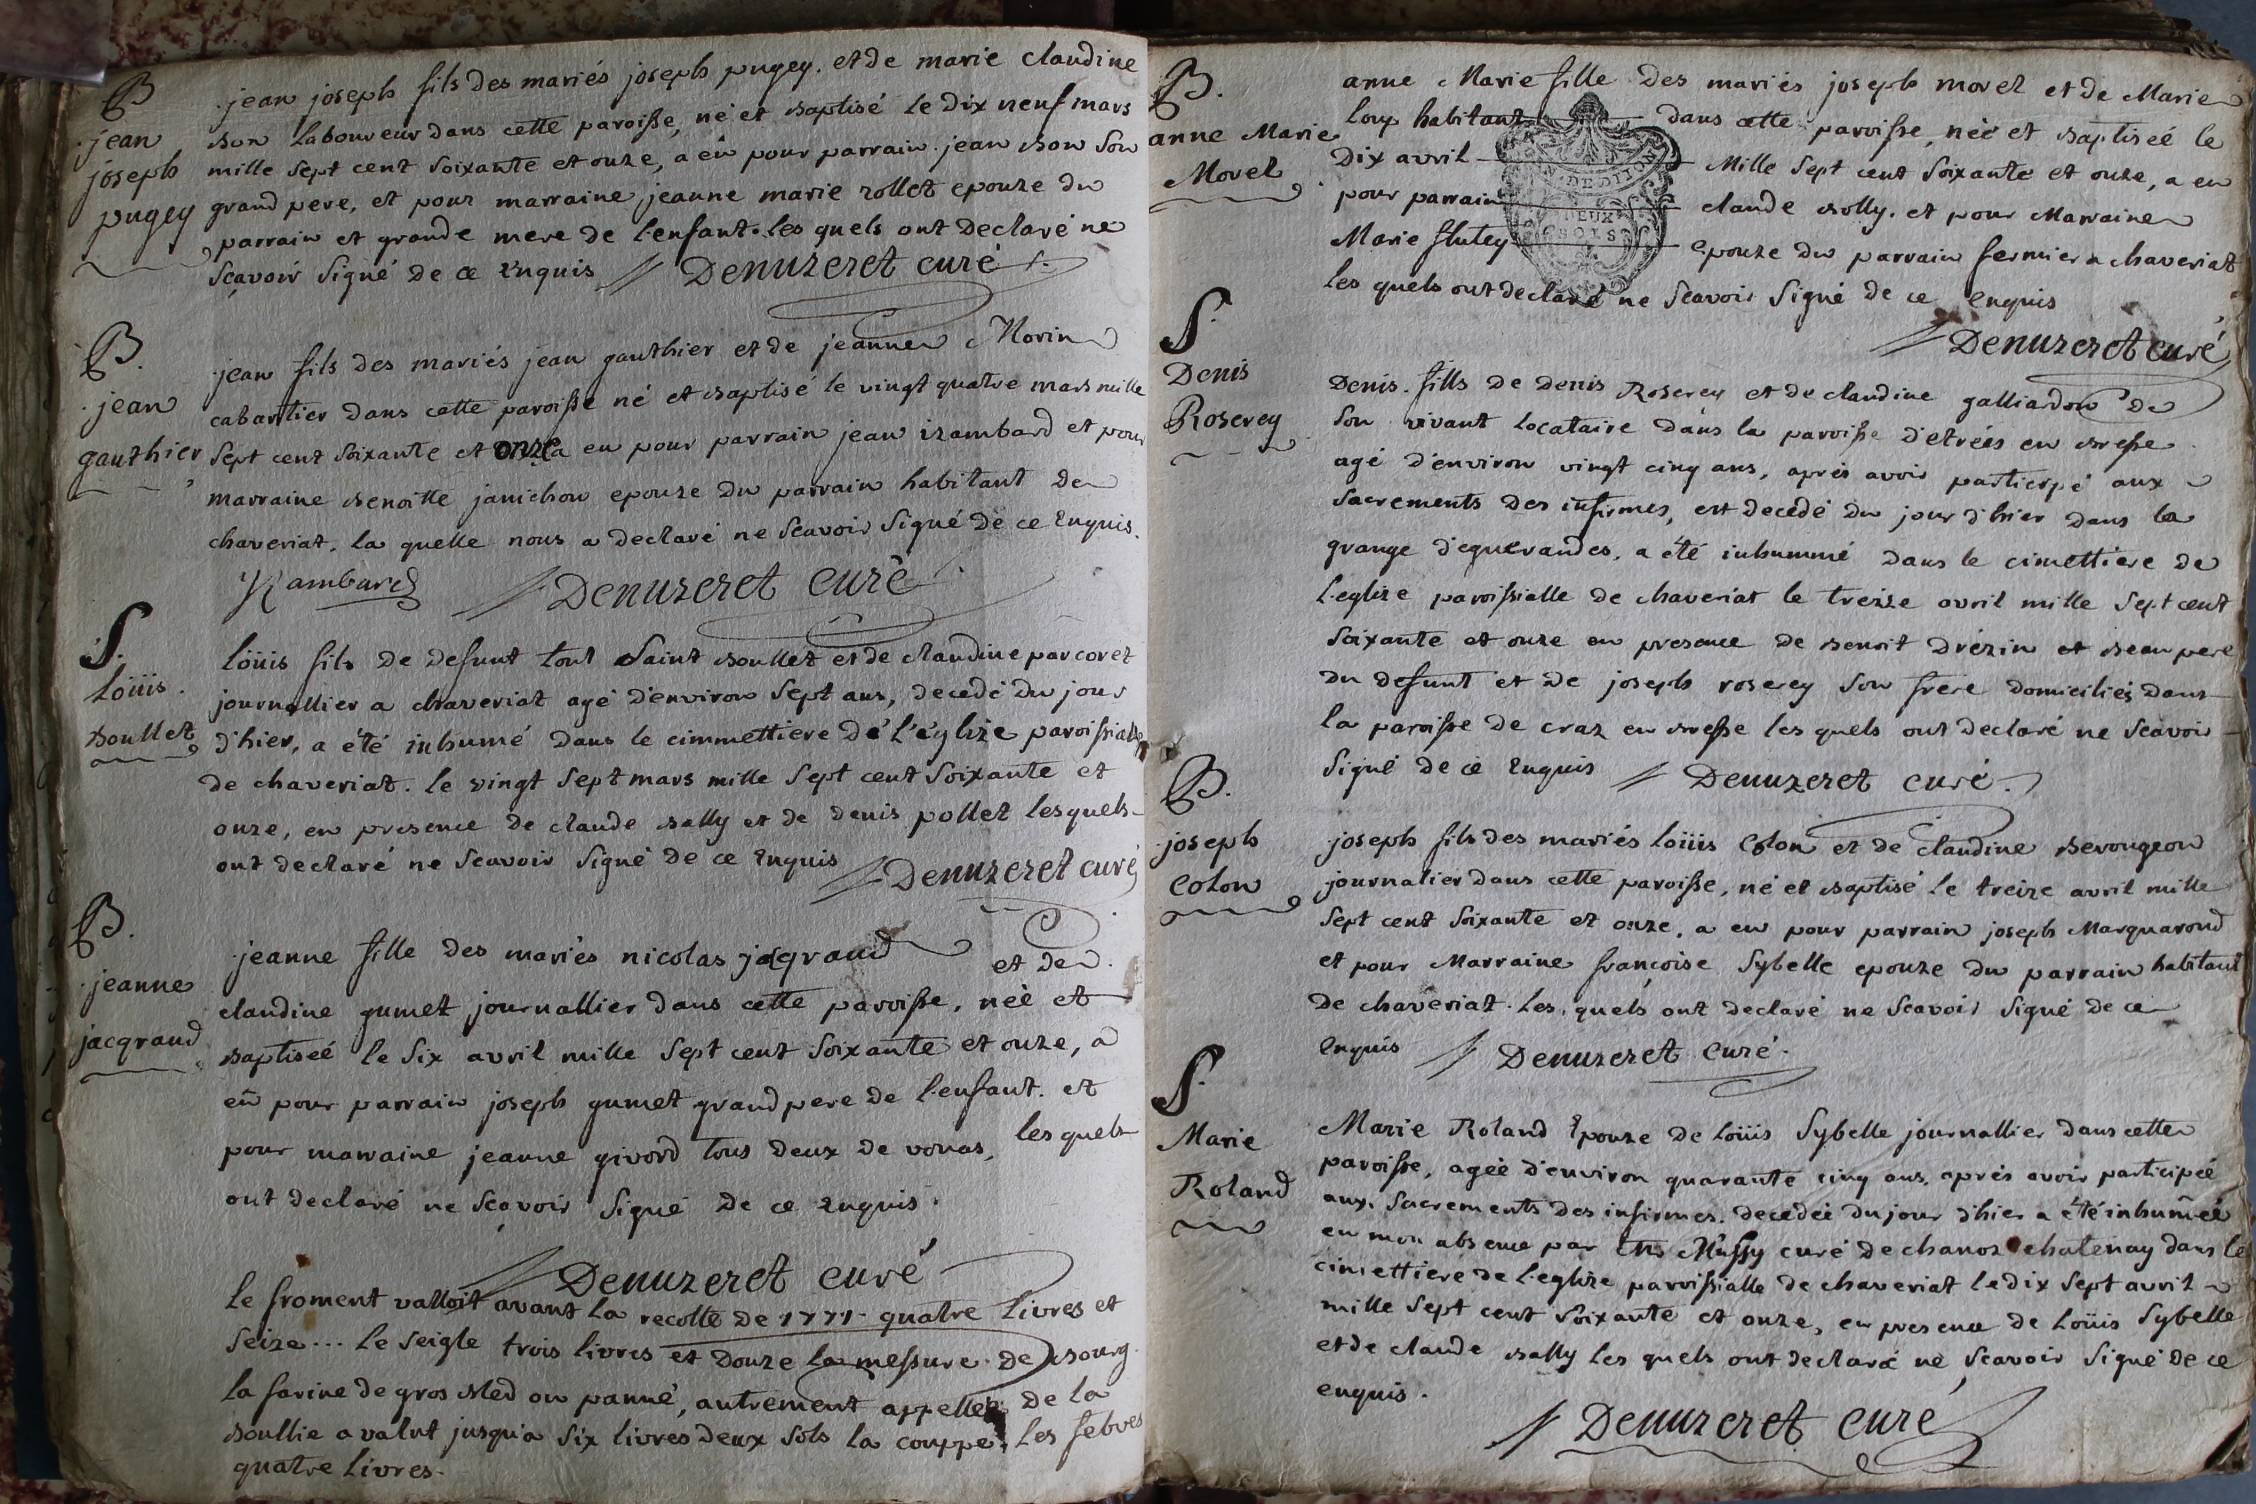 B
jean
joseph
pugey
jean joseph fils des mariés joseph pugey. et de marie claudine
bon laboureur dans cette paroisse, né et baptisé le dix neuf mars
mille sept cent soixante et onze, a eû pour parrain jean bon son
grand pere, et pour marraine jeanne marie rollet epouze du
parrain et grande mere de l'enfant. les quels ont declaré ne
sçavoir signé de ce Enquis Denuzeret curé
B.
jean
gauthier
jean fils des mariés jean gauthier et de jeanne Morin
cabartier dans cette paroisse né et baptisé le vingt quatre mars mille
sept cent soixante et onze a eu pour parrain jean izambard et pour
marraine benoitte janichon epouze du parrain habitant de
chaveriat. la quelle nous a declaré ne sçavoir signé de ce Enquis.
Yzambard Denuzeret curé
S.
Loüis
boullet
Loüis fils de defunt tout saint boullet et de claudine parcoret
journallier a chaveriat agé d'environ sept ans, decedé du jour
d'hier, a été inhumé dans le cimmettiere de l'églize paroissialle
de chaveriat. le vingt sept mars mille sept cent soixante et
onze, en presence de claude bally et de denis pollet lesquels
ont declaré ne scavoir signé de ce Enquis Denuzeret curé
B.
jeanne
jacgraud
jeanne fille des mariés nicolas jacgraud et de
claudine gumet journallier dans cette paroisse, néé et
baptiseé le six avril mille sept cent soixante et onze, a
eû pour parrain joseph gumet grand pere de l'enfant. et
pour marraine jeanne givord tous deux de vonas, les quels
ont declaré ne sçavoir signé de ce Enquis.
Denuzeret curé
le froment valloit avant la recolte de 1771. quatre livres et
seize... le seigle trois livres et douze la messure de bourg.
la farine de gros bled ou panné, autrement appellez de la
boullie a valut jusqu'a six livres deux sols la couppe. les febves
quatre livres.
B.
anne Marie
Morel
anne Marie fille des mariés joseph morel et de Marie
loup habitant dans cette paroisse, néé et baptiseé le
dix avril Mille sept cent soixante et onze, a eu
pour parrain claude bolly. et pour Marraine
Marie flutey epouze du parrain fermier a chaveriat
les quels ont declaré ne scavoir signé de ce enquis
DEUX
SOLS
Denuzeret curé
S.
Denis
Roserey
Denis. fils de denis Roserey et de claudine galliardon de
son vivant locataire dans la paroisse d'etrées en bresse
agé d'environ vingt cinq ans, aprés avoir particpé aux
sacrements des infirmes, est decedé du jour d'hier dans la
grange d'equerandes, a été inhummé dans le cimettiere de
l'eglize paroissialle de chaveriat le treize avril mille sept cent
soixante et onze en presence de benoit drézin et beau pere
du defunt et de joseph roserey son frere domiciliés dans
la paroisse de craz en bresse les quels ont declaré ne scavoir
signé de ce Enquis Denuzeret curé.
B.
joseph
Colon
joseph fils des mariés loüis Colon et de claudine berougeon
journalier dans cette paroisse, né et baptisé le treize avril mille
sept cent soixante et onze, a eu pour parrain joseph Marquarond
et pour Marraine francoise Sybelle epouze du parrain habitant
de chaveriat. les quels ont declaré ne scavoir signé de ce
enquis Denuzeret curé.
S.
Marie
Roland
Marie Roland Epouze de loüis Sybelle journallier dans cette
paroisse, ageé d'environ quarante cinq ans, aprés avoir participeé
aux sacrements des infirmes. decedeé du jour d'hier a été inhumeé
en mon absence par Mussy curé de chanoz chatenay dans le
cimettiere de l'eglize paroissialle de chaveriat le dix sept avril
mille sept cent soixante et onze, en presence de loüis Sybelle
et de claude bally les quels ont declaré ne scavoir signé de ce
enquis.
Denuzeret curé